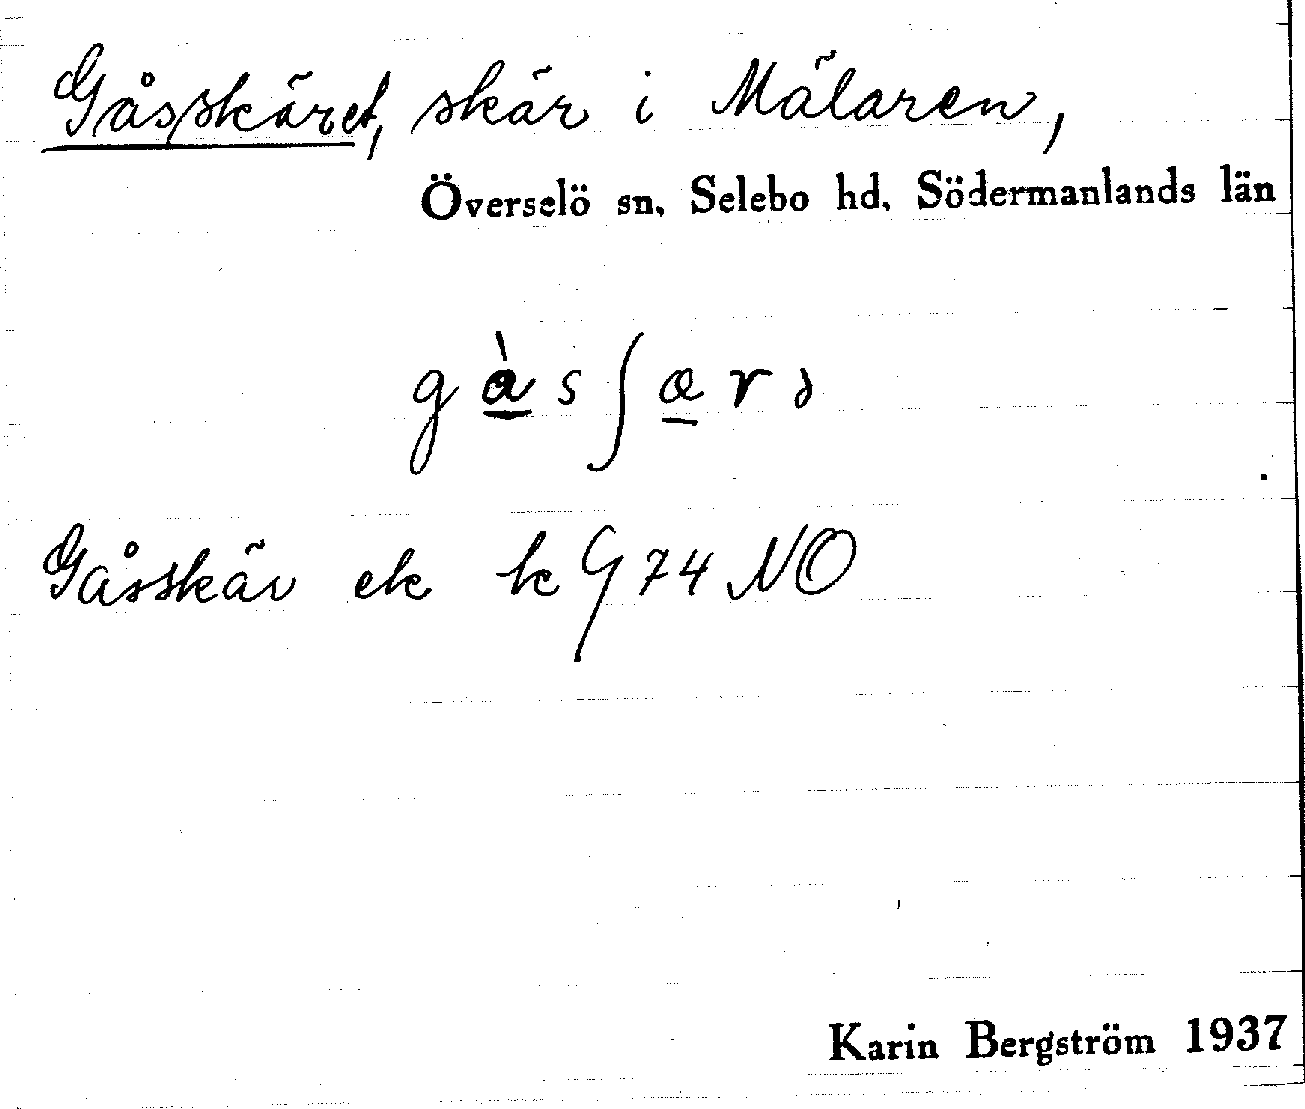 Gåsskäret, skär i Mälaren,
Överselö sn, Selebo hd, Södermanlands län
gàsʃærə
Gåsskär ek k G 74 NO
Karin Bergström 1937